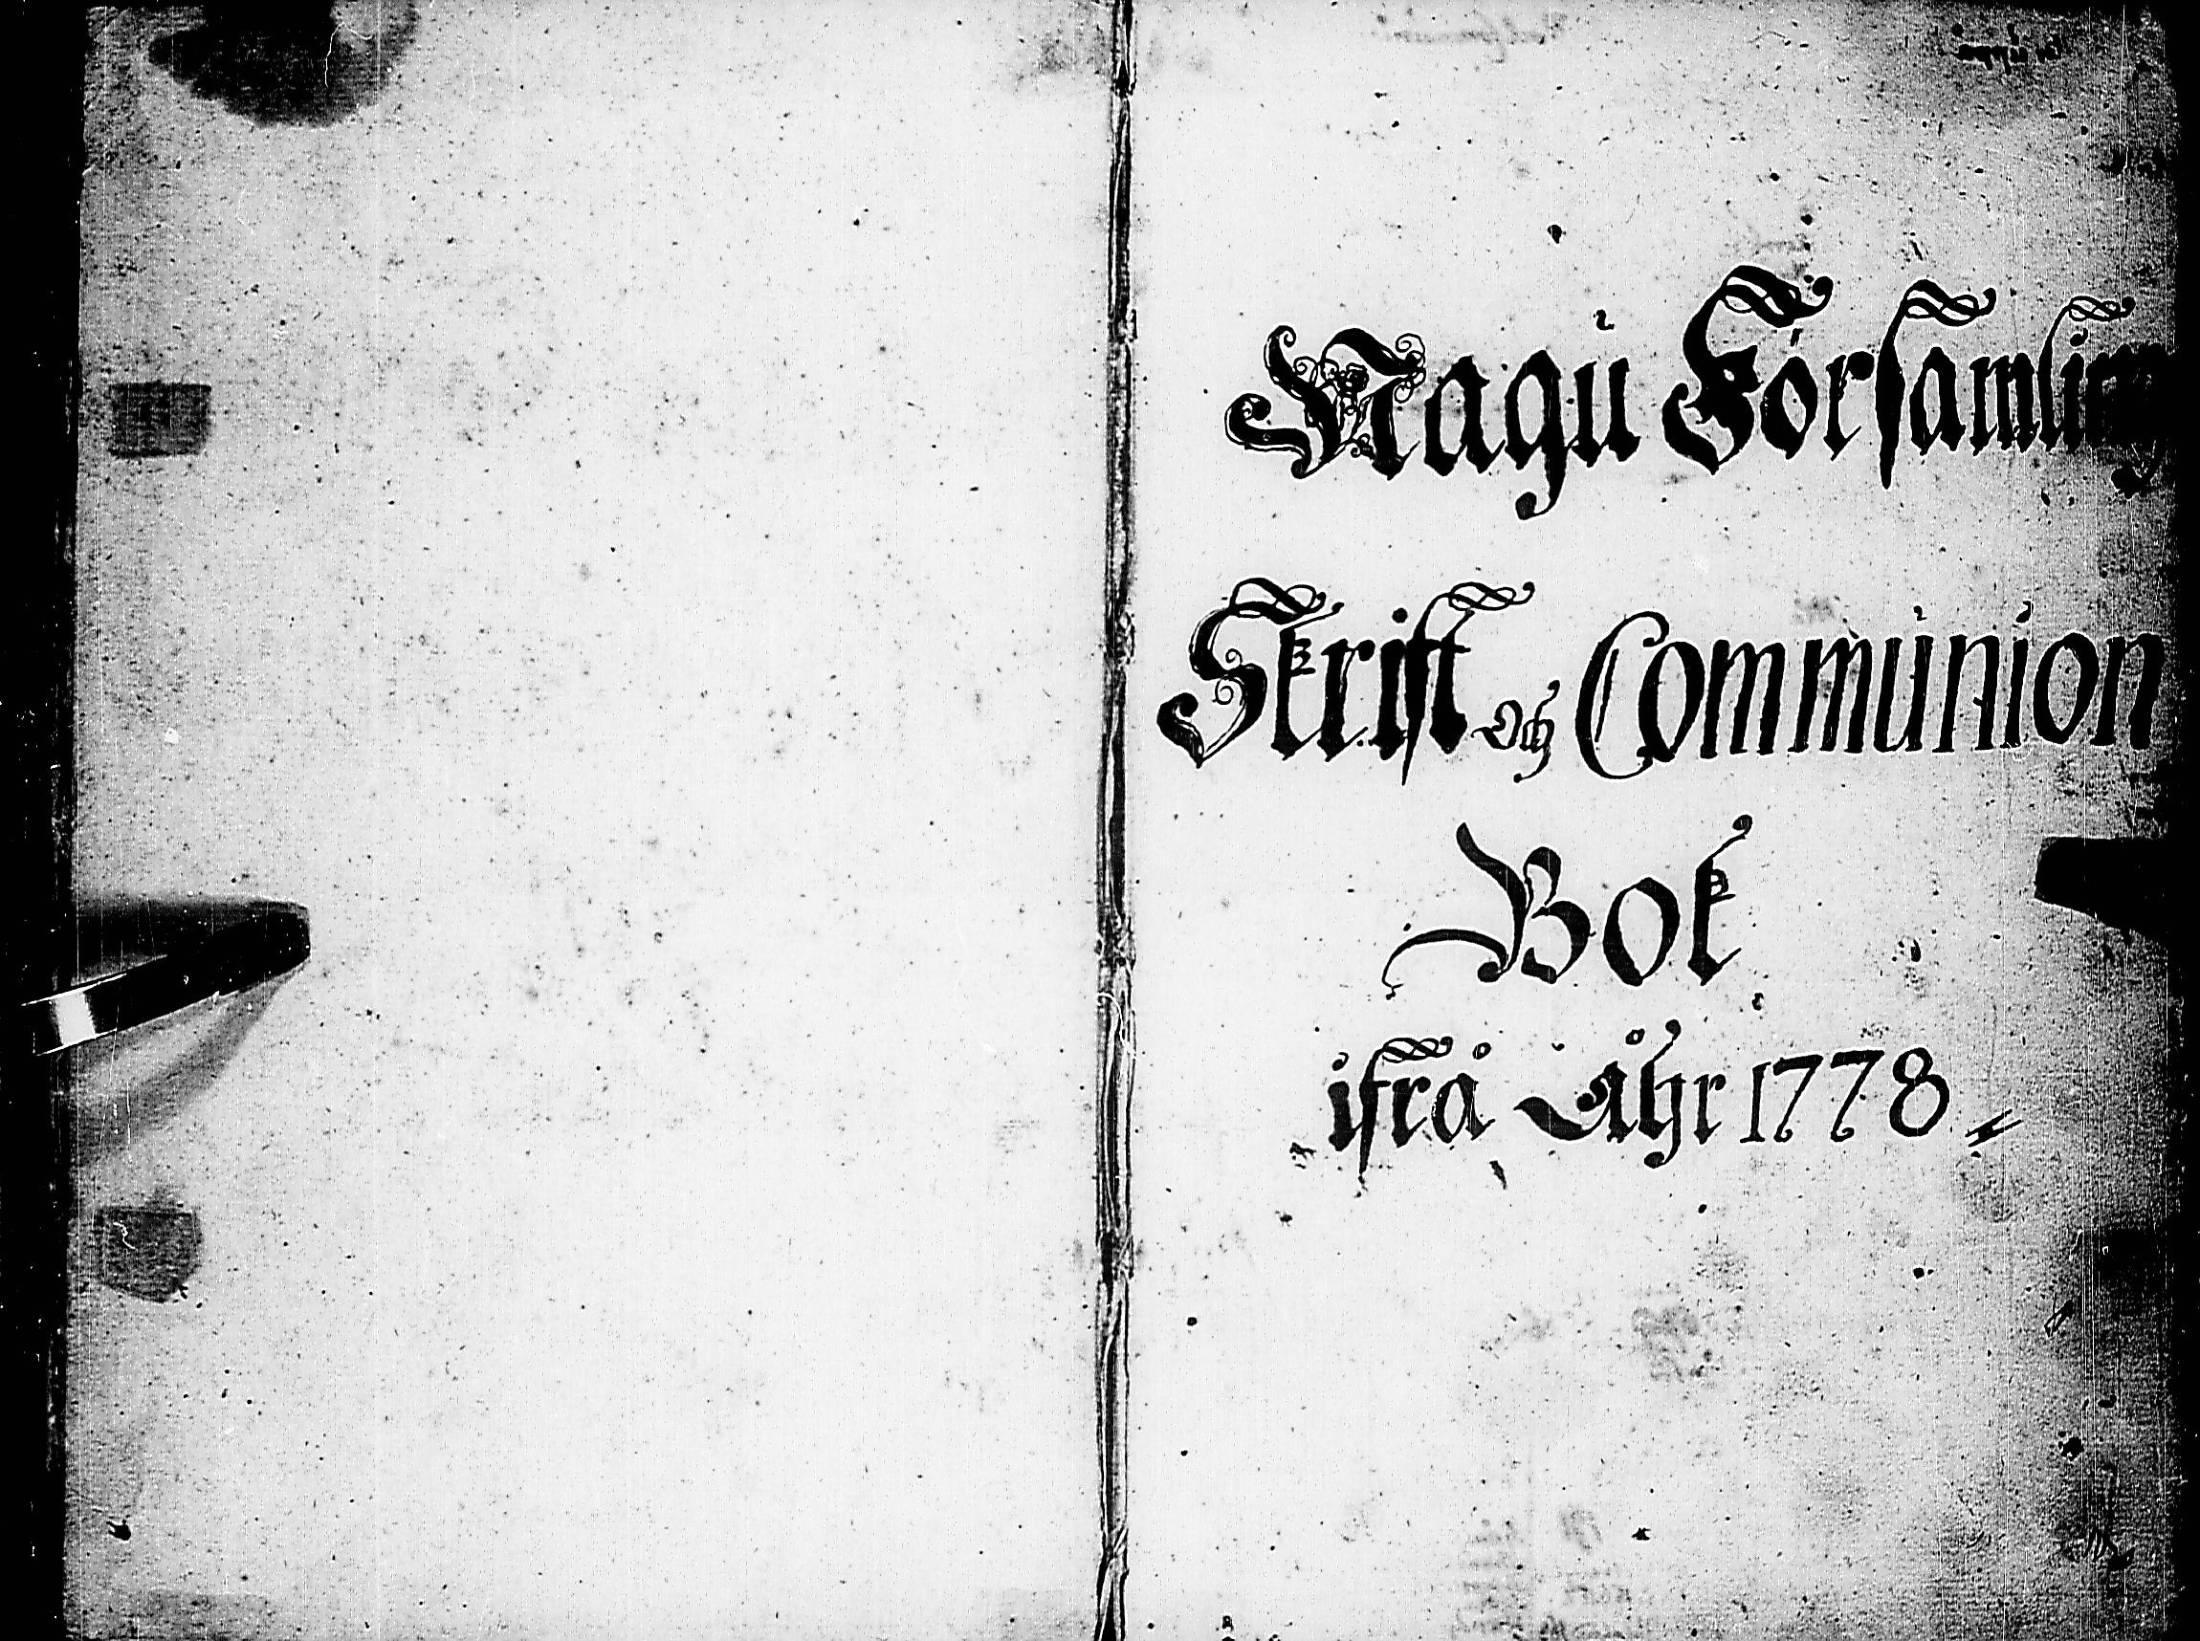 Nagu Församling
Skrift och Communion
Bok
ifrå Åhr 1778